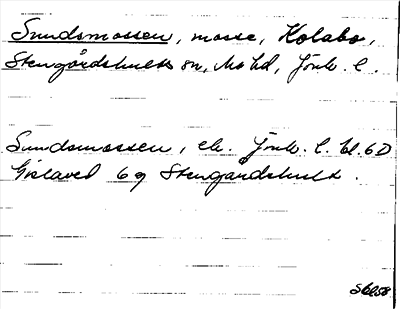 Sundsmossen, mosse, Kolabo,
Stengårdshults sn, Mo hd, Jönk. l.
Sundsmossen, ek. Jönk. l. bl. 6D
Gislaved 6 g Stengårdshult.